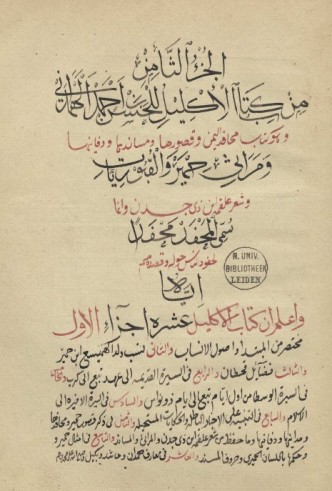 الجزء الثامن
من كتاب الاكليل للحسن بن احمد الهمداني
وهو كتاب محافد اليمن وقصورها ومساندها ودفاينها
ومراثي حمير والقبوريات
وشعر علقمة بن ذي جدن وانما
سمي المحفد محفدا
لحفود الناس حوله وقصدهم
اياه
N. UNIV.
BIBLIOTHEEK
LEIDEN
واعلم ان كتاب الاكليل عشرة اجزاء الاول
مختصر من المبتدا واصول الانساب والثاني نسب ولد الهميسع بن حمير
والثالث فضايل قحطان والرابع في السيرة القديمة الى عهد تبع ابي كرب والخامس
في السيرة الوسطا من اول ايام تبع الى ايام ذو نواس والسادس في السيرة الاخيرة الى
الاسلام والسابع في التنبيه على الاخبار الباطل والحكايات المستحيلة والثامن في ذكر قصور حمير
ومدنها ودفاينها وما حفظ من شعر علقمة بن ذي جدن والمراثي والمساند والتاسع في امثال حمير
وحكمها باللسان الحميري وحروف المسند والعاشر في معارف همدان